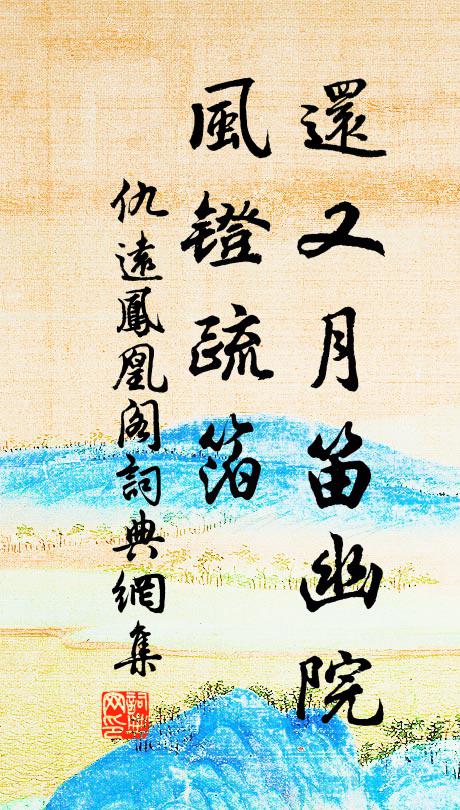 還又月笛幽院
風鐙疏箔
仇遠鳳凰閣詞典網集